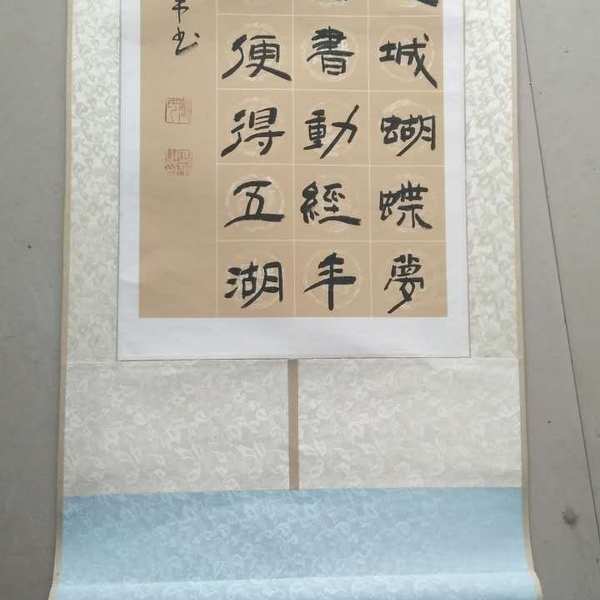 城蝴蝶夢
書動經年
便得五湖
书